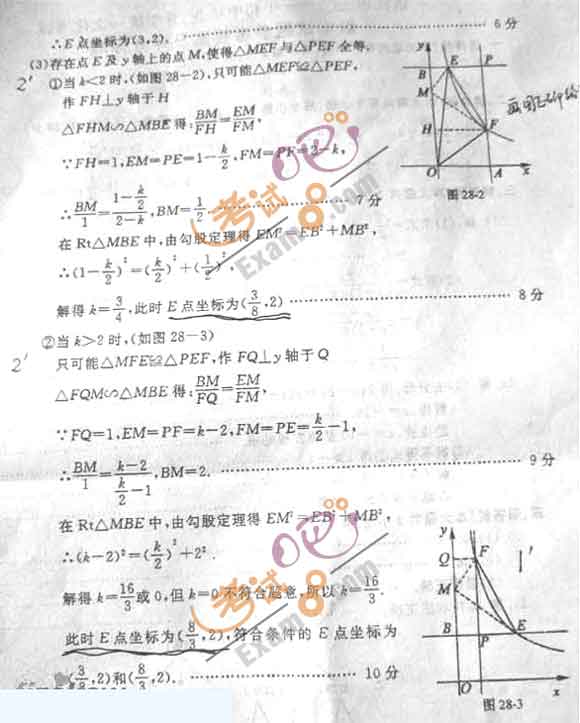 ∴E点坐标为(3,2). ………… 6分
(3)存在点E及y轴上的点M,使得△MEF与△PEF全等.
2′ ①当k<2时,(如图28-2),只可能△MEF≌△PEF,
作FH⊥y轴于H
△FHM∽△MBE得:BM/FH=EM/FM,
∵FH=1,EM=PE=1-k/2,FM=PF=2-k,
∴BM/1=(1-k/2)/(2-k),BM=1/2 ………… 7分
在Rt△MBE中,由勾股定理得EM²=EB²+MB²,
∴(1-k/2)²=(k/2)²+(1/2)²,
解得k=3/4,此时E点坐标为(3/8,2) ………… 8分
y
B E P
M
H F
O A x
图28-2
②当k>2时,(如图28-3)
2′ 只可能△MFE≌△PEF,作FQ⊥y轴于Q
△FQM∽△MBE得:BM/FQ=EM/FM,
∵FQ=1,EM=PF=k-2,FM=PE=k/2-1,
∴BM/1=(k-2)/(k/2-1),BM=2. ………… 9分
在Rt△MBE中,由勾股定理得EM²=EB²+MB²,
∴(k-2)²=(k/2)²+2².
解得k=16/3或0,但k=0不符合题意,所以k=16/3.
此时E点坐标为(8/3,2),符合条件的E点坐标为
(3/8,2)和(8/3,2). ………… 10分
y
Q F 1′
M
B P E
O x
图28-3
考试吧
Exam8.com
考试吧
Exam8.com